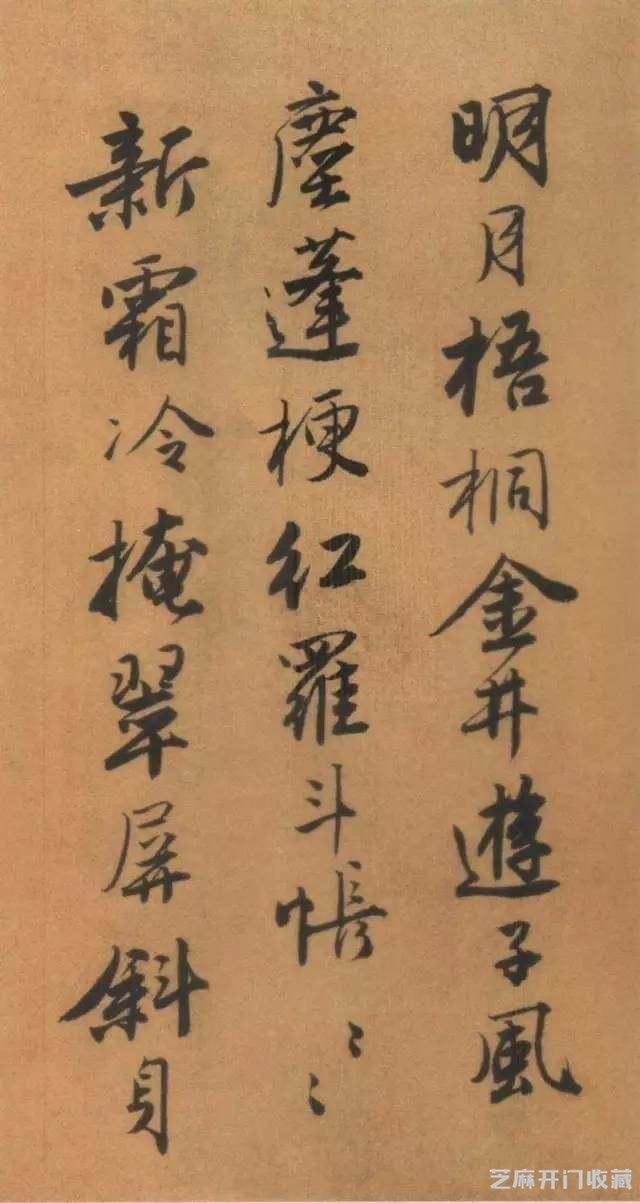 明月梧桐金井遊子風
塵蓬梗紅羅斗帳〻
新霜冷掩翠屏斜月
芝麻开门收藏